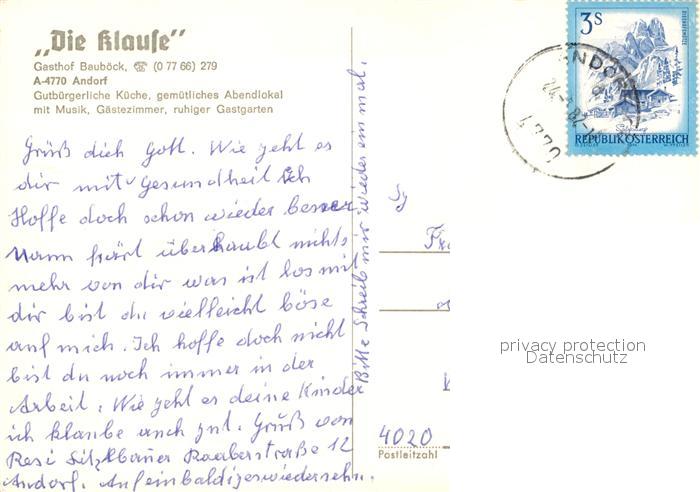 „Die Klause“
Gasthof Bauböck, ☎ (0 77 66) 279
A-4770 Andorf
Gutbürgerliche Küche, gemütliches Abendlokal
mit Musik, Gästezimmer, ruhiger Gastgarten
Grüß dich Gott. Wie geht es
dir mit Gesundheit ich
Hoffe doch schon wieder besser
Mann hört überhaubt nichts
mehr von dir was ist los mit
dir bist du vielleicht böse
auf mich. Ich hoffe doch nicht
bist du noch immer in der
Arbeit. Wie geht es deine Kinder
ich klaube auch gut. Gruß von
Resi Raaberstraße 12
Andorf. Aufeinbaldigeswiedersehn.
Bitte Schreib mir wieder einmal.
3 S
REPUBLIK ÖSTERREICH
ANDORF
4770
4020
Postleitzahl
privacy protection
Datenschutz